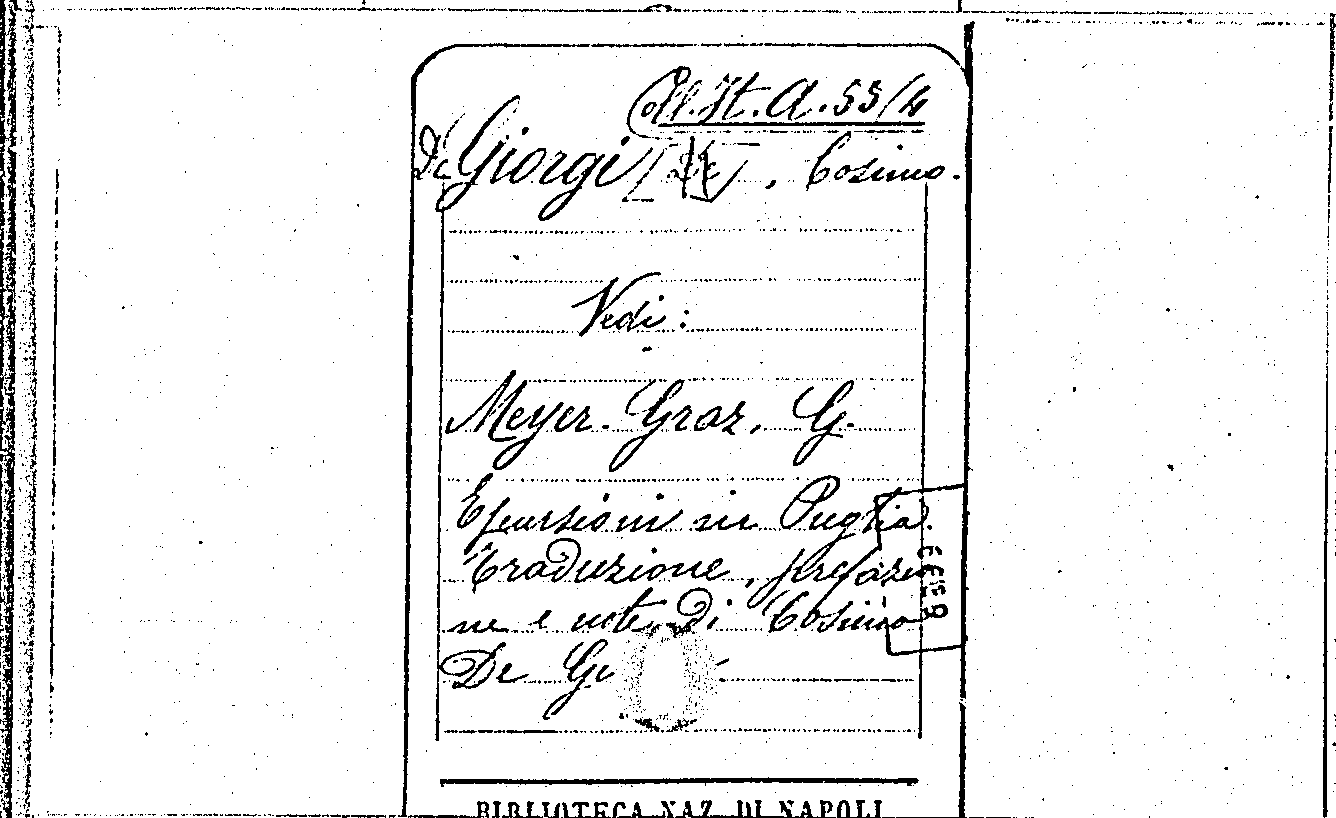 Coll. It. A. 53/4
De Giorgi [De], Cosimo.
Vedi:
Meyer-Graz, G.
Escursioni in Puglia.
Traduzione, prefazio
ne e note di Cosimo
De Gi
BIBLIOTECA NAZ. DI NAPOLI